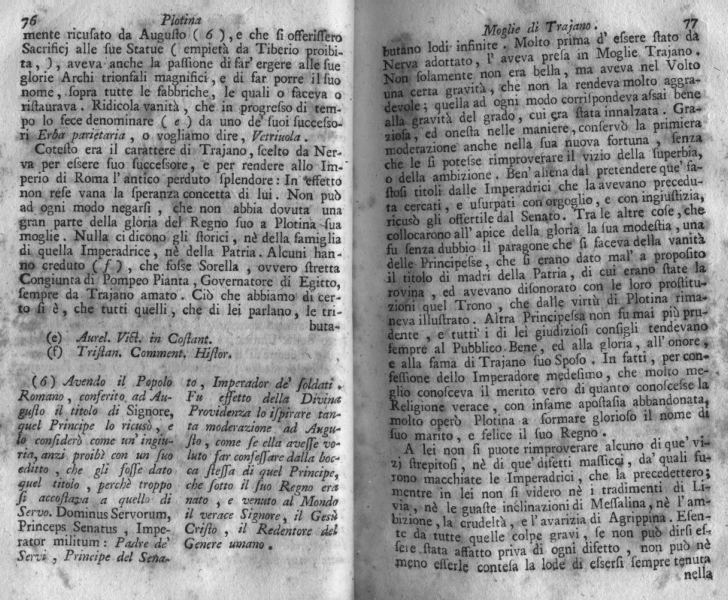 76 Plotina
mente ricusato da Augusto ( 6 ), e che si offerissero
Sacrificj alle sue Statue ( empietà da Tiberio proibi-
ta, ), aveva anche la passione di far' ergere alle sue
glorie Archi trionfali magnifici, e di far porre il suo
nome, sopra tutte le fabbriche, le quali o faceva o
ristaurava. Ridicola vanità, che in progresso di tem-
po lo fece denominare ( e ) da uno de' suoi successo-
ri Erba parietaria, o vogliamo dire, Vetriuola.
Cotesto era il carattere di Trajano, scelto da Ner-
va per essere suo successore, e per rendere allo Im-
perio di Roma l'antico perduto splendore: In effetto
non rese vana la speranza concetta di lui. Non può
ad ogni modo negarsi, che non abbia dovuta una
gran parte della gloria del Regno suo a Plotina sua
moglie. Nulla ci dicono gli storici, nè della famiglia
di quella Imperadrice, nè della Patria. Alcuni han-
no creduto ( f ), che fosse Sorella, ovvero stretta
Congiunta di Pompeo Pianta, Governatore di Egitto,
sempre da Trajano amato. Ciò che abbiamo di cer-
to si è, che tutti quelli, che di lei parlano, le tri-
buta-
(e) Aurel. Vict. in Costant.
(f) Tristan. Comment. Histor.
(6) Avendo il Popolo
Romano, conferito ad Au-
gusto il titolo di Signore,
quel Principe lo ricusò, e
lo considerò come un' ingiu-
ria, anzi proibè con un suo
editto, che gli fosse dato
quel titolo, perchè troppo
si accostava a quello di
Servo. Dominus Servorum,
Princeps Senatus, Impe-
rator militum: Padre de'
Servi, Principe del Sena-
to, Imperador de' soldati.
Fu effetto della Divina
Providenza lo ispirare tan-
ta moderazione ad Augu-
sto, come se ella avesse vo-
luto far confessare dalla boc-
ca stessa di quel Principe,
che sotto il suo Regno era
nato, e venuto al Mondo
il verace Signore, il Gesù
Cristo, il Redentore del
Genere umano.
Moglie di Trajano. 77
butano lodi infinite. Molto prima d' essere stato da
Nerva adottato, l' aveva presa in Moglie Trajano.
Non solamente non era bella, ma aveva nel Volto
una certa gravità, che non la rendeva molto aggra-
devole; quella ad ogni modo corrispondeva assai bene
alla gravità del grado, cui era stata innalzata. Gra-
ziosa, ed onesta nelle maniere, conservò la primiera
moderazione anche nella sua nuova fortuna, senza
che le si potesse rimproverare il vizio della superbia,
o della ambizione. Ben' aliena dal pretendere que' fa-
stosi titoli dalle Imperadrici che la avevano precedu-
ta cercati, e usurpati con orgoglio, e con ingiustizia,
ricusò gli offertile dal Senato. Tra le altre cose, che
collocarono all' apice della gloria la sua modestia, una
fu senza dubbio il paragone che si faceva della vanità
delle Principesse, che si erano dato mal' a proposito
il titolo di madri della Patria, di cui erano state la
rovina, ed avevano disonorato con le loro prostitu-
zioni quel Trono, che dalle virtù di Plotina rima-
neva illustrato. Altra Principessa non fu mai più pru-
dente, e tutti' i di lei giudiziosi consigli tendevano
sempre al Pubblico Bene, ed alla gloria, all' onore,
e alla fama di Trajano suo Sposo. In fatti, per con-
fessione dello Imperadore medesimo, che molto me-
glio conosceva il merito vero di quanto conoscesse la
Religione verace, con infame apostasia abbandonata,
molto operò Plotina a formare glorioso il nome di
suo marito, e felice il suo Regno.
A lei non si puote rimproverare alcuno di que' vi-
zj strepitosi, nè di que' difetti massicci, da' quali fu-
rono macchiate le Imperadrici, che la precedettero;
mentre in lei non si videro nè i tradimenti di Li-
via, nè le guaste inclinazioni di Messalina, nè l' am-
bizione, la crudeltà, e l' avarizia di Agrippina. Esen-
te da tutte quelle colpe gravi, se non può dirsi es-
sere stata affatto priva di ogni difetto, non può nè
meno esserle contesa la lode di essersi sempre tenuta
nella